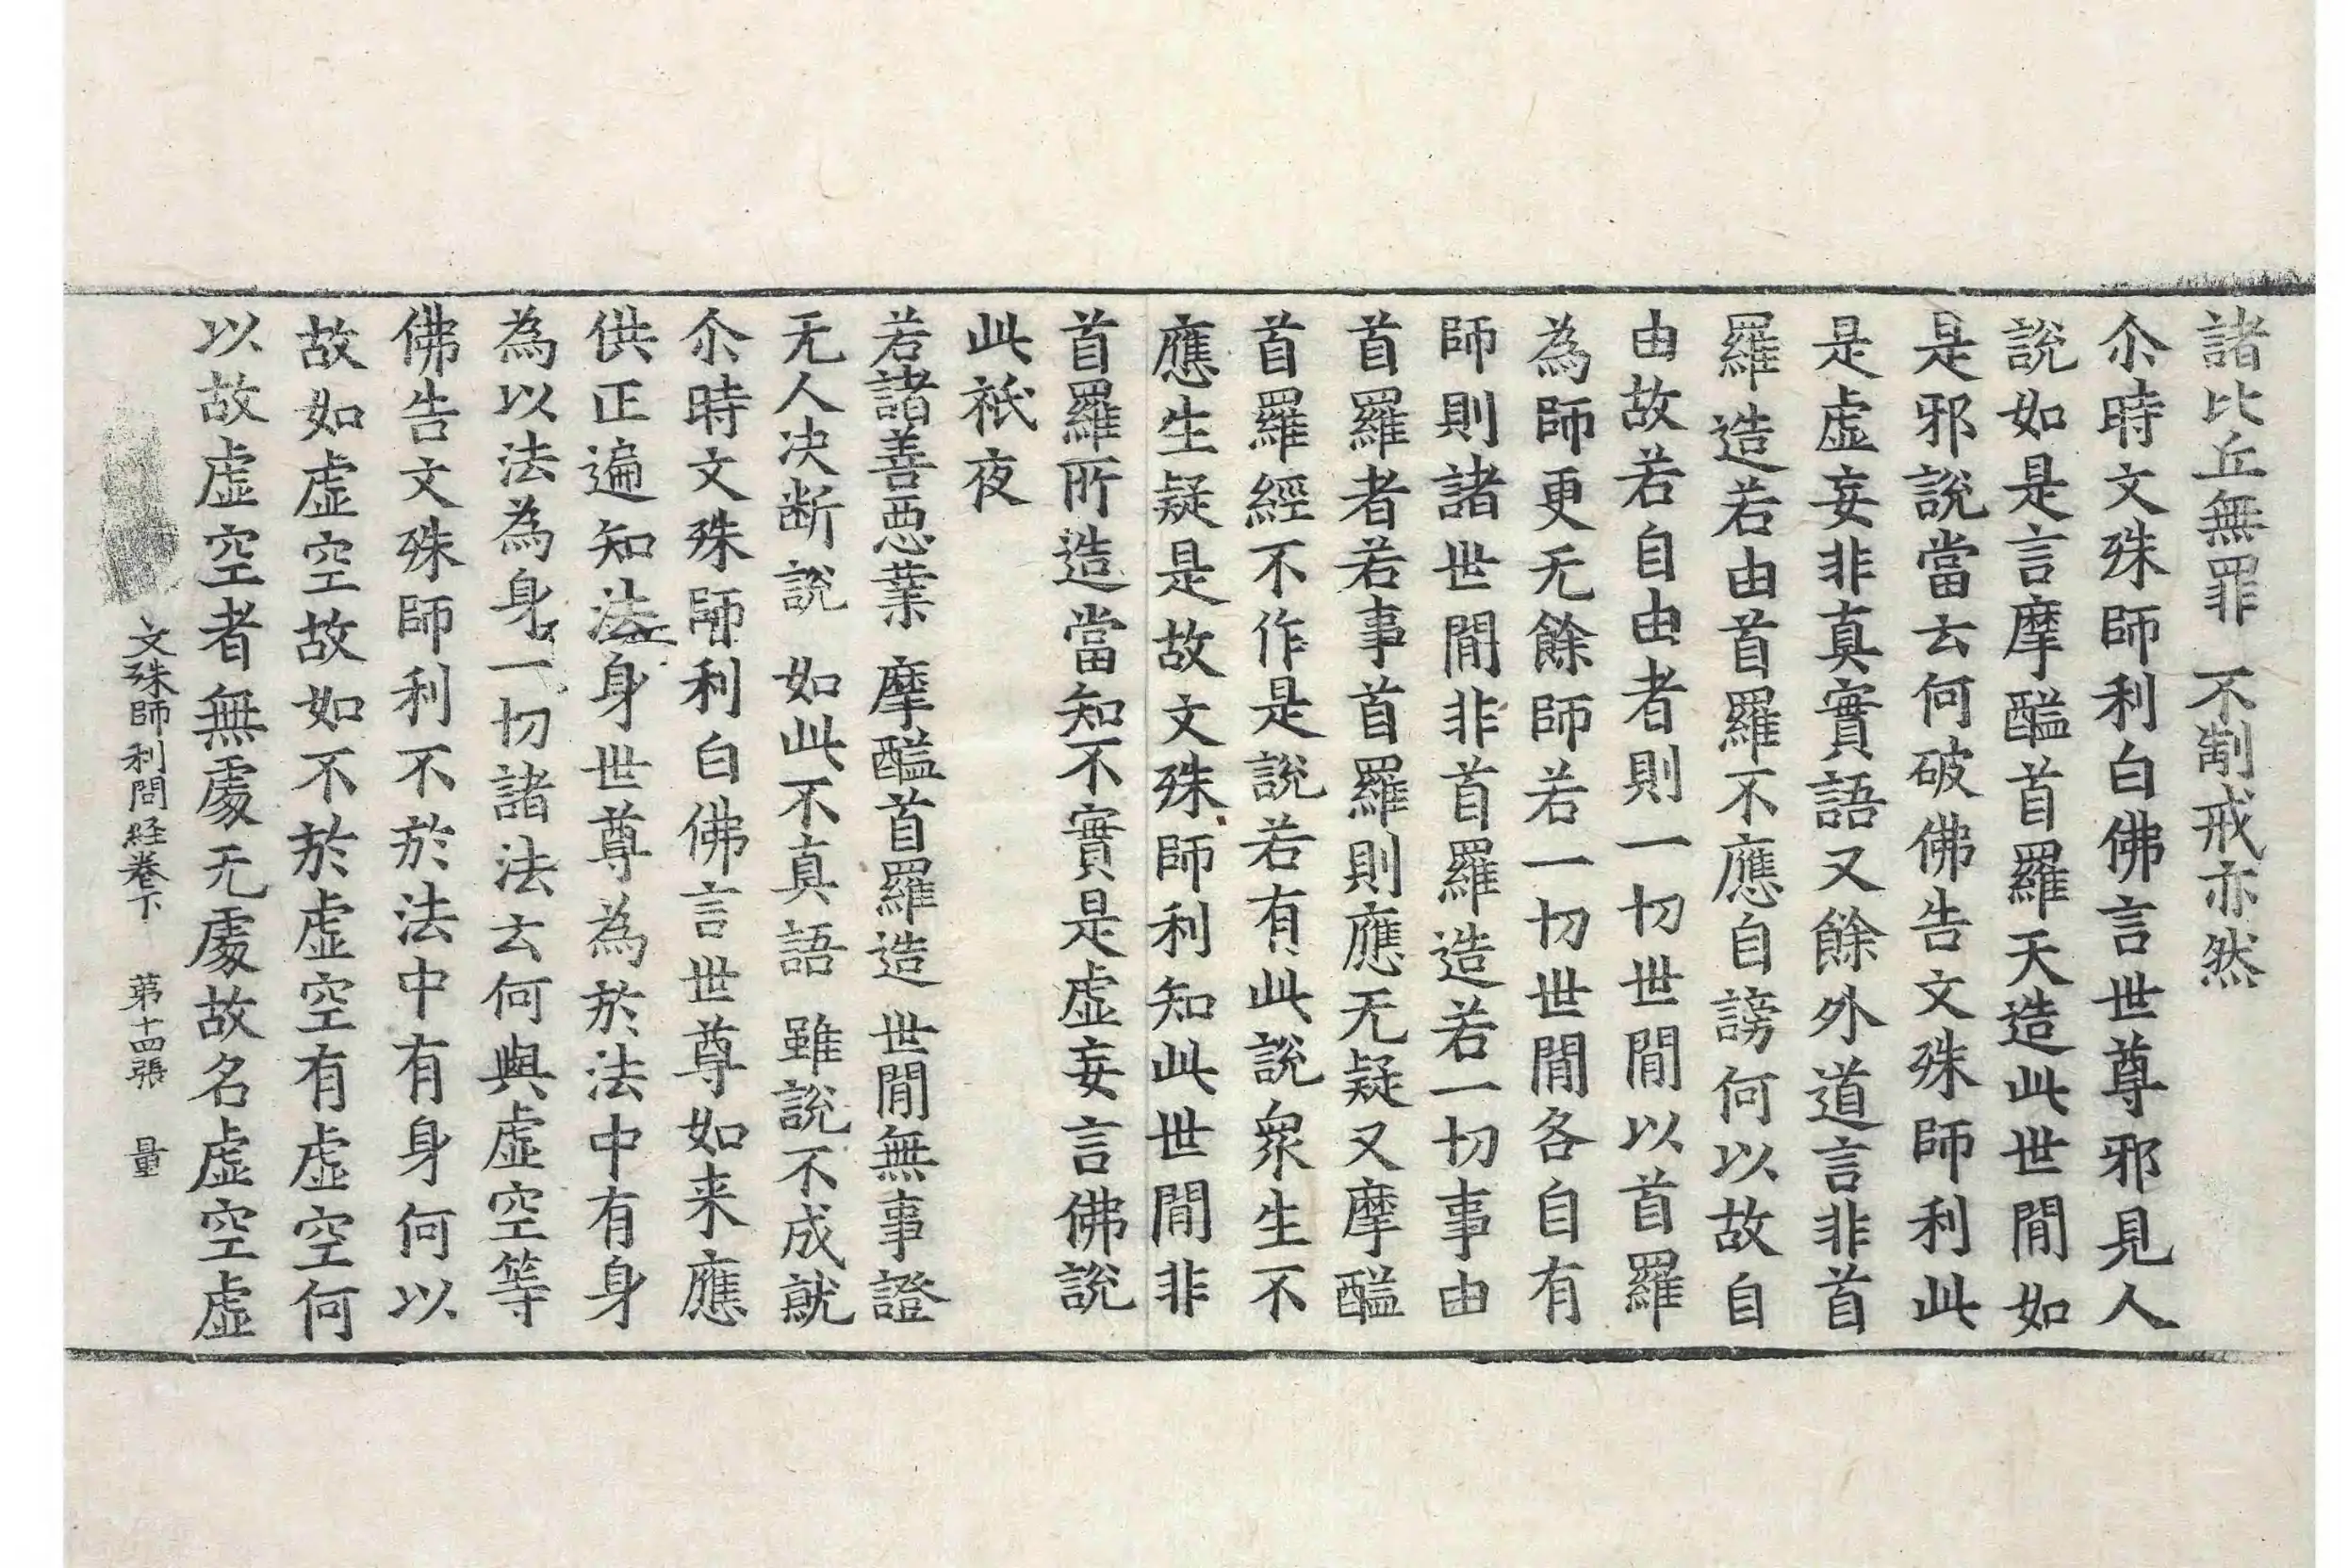 諸比丘無罪　不制戒亦然
尒時文殊師利白佛言世尊邪見人
說如是言摩醯首羅天造此世閒如
是邪說當云何破佛告文殊師利此
是虛妄非真實語又餘外道言非首
羅造若由首羅不應自謗何以故自
由故若自由者則一切世閒以首羅
為師更无餘師若一切世閒各自有
師則諸世閒非首羅造若一切事由
首羅者若事首羅則應无疑又摩醯
首羅經不作是說若有此說衆生不
應生疑是故文殊師利知此世閒非
首羅所造當知不實是虛妄言佛說
此祇夜
若諸善惡業　摩醯首羅造　世閒無事證
无人决断說　如此不真語　雖說不成就
尒時文殊師利白佛言世尊如来應
供正遍知法身世尊為於法中有身
為以法為身一切諸法云何與虛空等
佛告文殊師利不於法中有身何以
故如虛空故如不於虛空有虛空何
以故虛空者無處无處故名虛空虛
文殊師利問経卷下　苐十四張　量